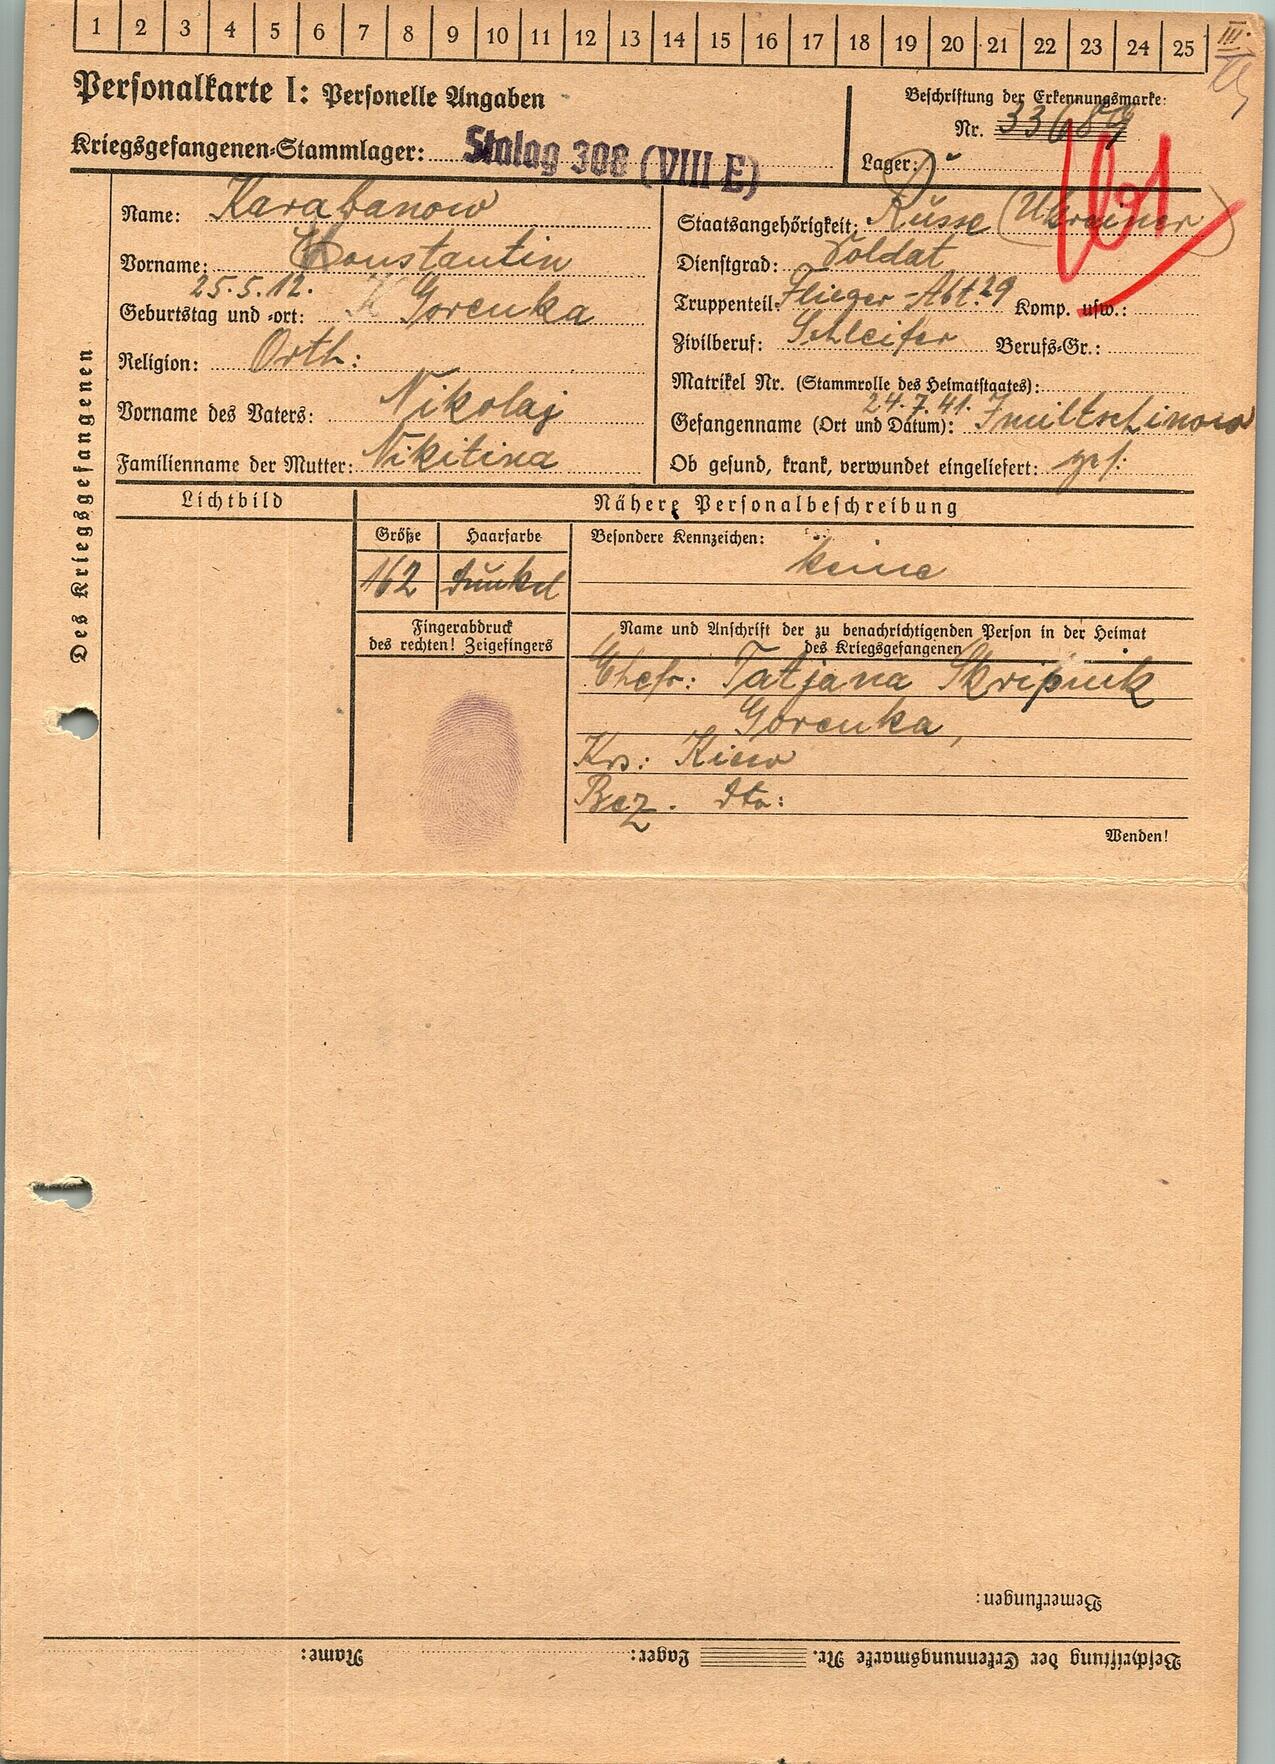 1 2 3 4 5 6 7 8 9 10 11 12 13 14 15 16 17 18 19 20 21 22 23 24 25
III.
Personalkarte I: Personelle Angaben
Kriegsgefangenen-Stammlager: Stalag 308 (VIII E)
Beschriftung der Erkennungsmarke:
Nr. 33689
Lager:
Des Kriegsgefangenen
Name: Karabanow
Vorname: Konstantin
Geburtstag und -ort: 25.5.12. Gorenka
Religion: Orth:
Vorname des Vaters: Nikolaj
Familienname der Mutter: Nikitina
Staatsangehörigkeit: Russe (Ukrainer)
Dienstgrad: Soldat
Truppenteil: Flieger-Abt. 29 Komp. usw.:
Zivilberuf: Schleifer Berufs-Gr.:
Matrikel Nr. (Stammrolle des Heimatstaates):
Gefangenname (Ort und Datum): 24.7.41.
Ob gesund, krank, verwundet eingeliefert: ges.
Lichtbild
Nähere Personalbeschreibung
Größe Haarfarbe Besondere Kennzeichen: keine
162 dunkel
Fingerabdruck
des rechten! Zeigefingers
Name und Anschrift der zu benachrichtigenden Person in der Heimat
des Kriegsgefangenen
Ehefr: Tatjana Skripnik
Gorenka,
Krs: Kiew
Bez. dto:
Wenden!
Bemerkungen:
Beschriftung der Erkennungsmarke Nr. Lager: Name: